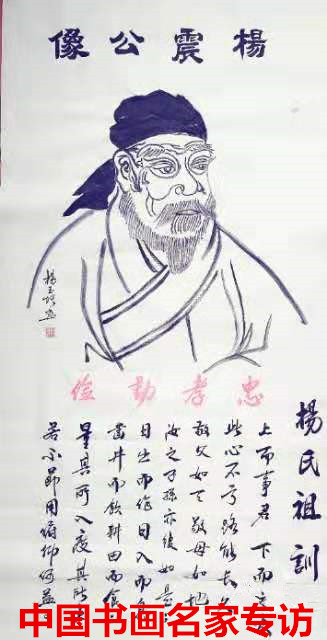 楊震公像
忠孝勤儉
楊氏祖訓
上而事君下而交
此心不亏路能长久
敬父如天敬母如地
汝之子孫亦復如是
日出而作日入而
凿井而飲耕田而食
量其所入度其所
若不節用俯仰何益
中国书画名家专访